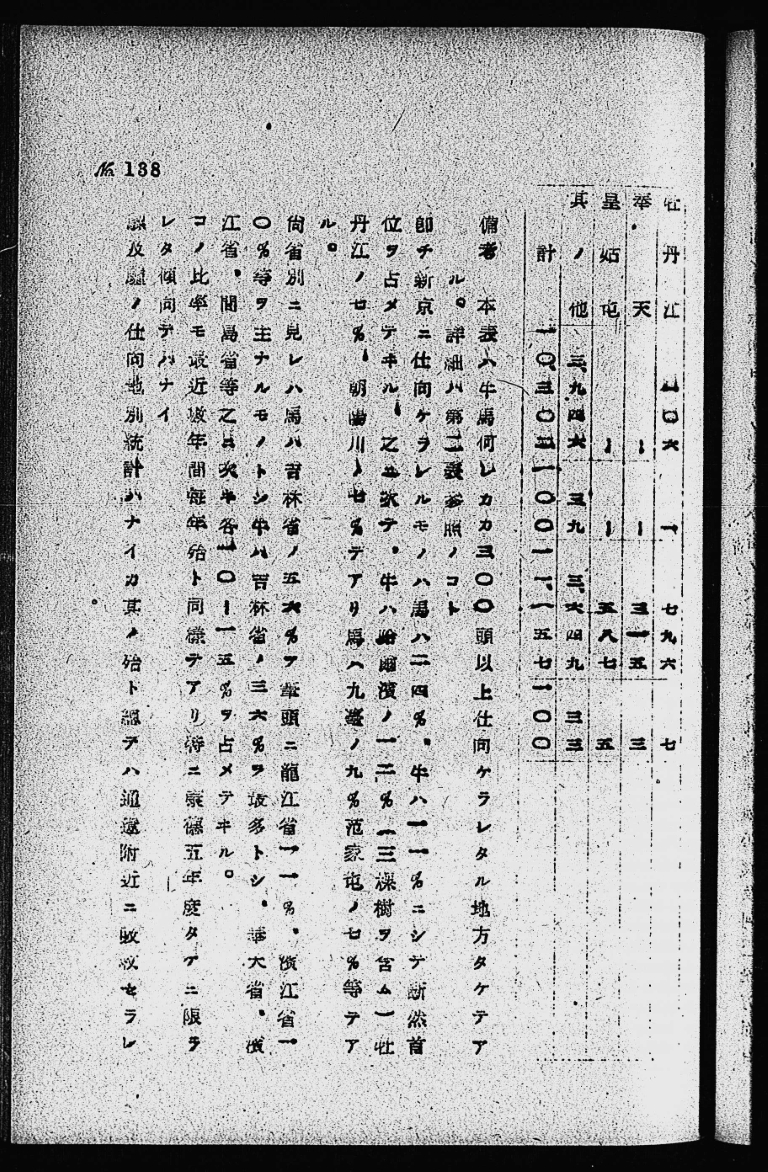 No. 138
牡丹江 二〇六 一 七九六 七
奉天 ー ー 三一五 三
皇姑屯 ー ー 五八七 五
其ノ他 三、九四六 三九 三、六四九 三三
計 一〇、三〇二 一〇〇 一一、一五七 一〇〇
備考 本表ハ牛馬何レカカ三〇〇頭以上仕向ケラレタル地方タケテア
ル。詳細ハ第二表参照ノコト
即チ新京ニ仕向ケラレルモノハ馬ハ二四%、牛ハ一一%ニシテ断然首
位ヲ占メテヰル、之ニ次テ、牛ハ哈爾濱ノ一二%(三棵樹ヲ含ム)牡
丹江ノ七%、朝陽川ノ七%テアリ馬ハ九臺ノ九%范家屯ノ七%等テア
ル。
尚省別ニ見レハ馬ハ吉林省ノ五六%ヲ筆頭ニ龍江省一一%、濱江省一
〇%等ヲ主ナルモノトシ牛ハ吉林省ノ三六%ヲ最多トシ、奉天省、濱
江省、間島省等之ニ次キ各一〇ー一五%ヲ占メテヰル。
コノ比率モ最近数年間毎年殆ト同様テアリ特ニ康徳五年度タケニ限ラ
レタ傾向テハナイ
騾及驢ノ仕向地別統計ハナイカ其ノ殆ト總テハ通遼附近ニ セラレ